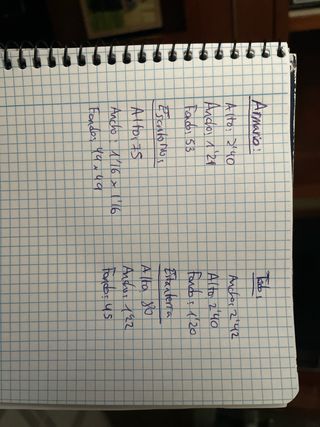 Armario:
Alto: 2'40
Ancho: 1'21
Fondo: 53
Escritorio:
Alto: 75
Ancho: 1'16 x 1'16
Fondo: 49 x 49
Todo:
Ancho: 2'42
Alto: 2'40
Fondo: 1'20
Estanteria
Alto 80
Ancho: 1'22
Fondo: 45